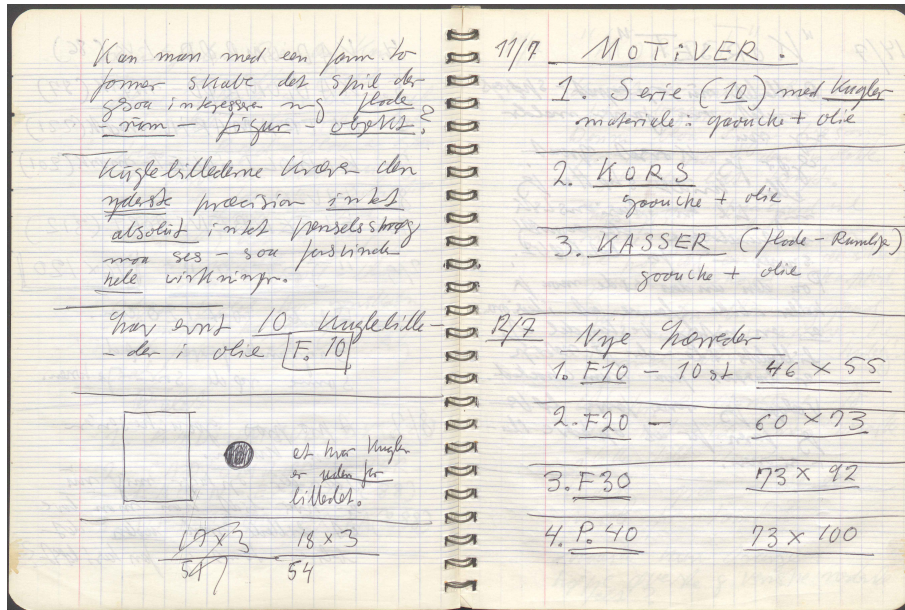 Kan man med een form to
former skabe det spil der
ogsaa interesserer mig flade
- rum - figur - objekt?
Kuglebillederne kræver den
yderste præcision intet
absolut intet penselsstrøg
maa ses - saa forsvinder
hele virkningen.
har ernt 10 Kuglebille-
- der i olie F. 10
et hvor Kuglen
er uden for
billedet.
19 x 3 18 x 3
57 54
11/7 MOTIVER.
1. Serie (10) med Kugler
materiale: gouache + olie
2. KORS
gouache + olie
3. KASSER (flade - Rumlige)
gouache + olie
12/7 Nye Lærreder
1. F10 - 10 st 46 x 55
2. F20 - 60 x 73
3. F30 73 x 92
4. P. 40 73 x 100